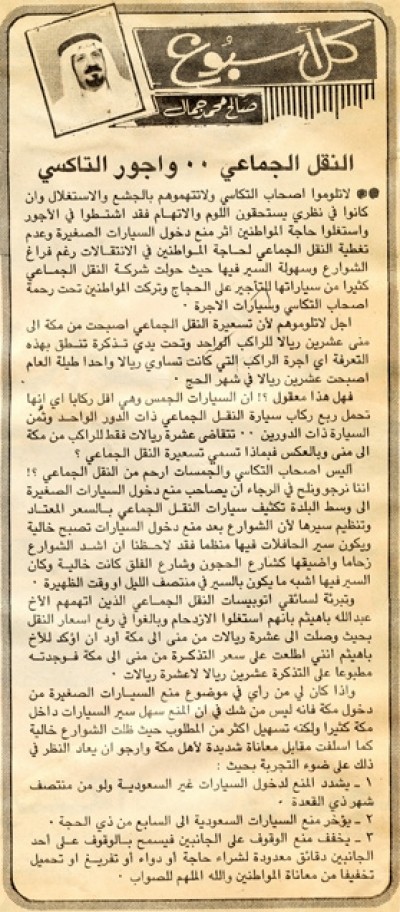 كل أسبوع
صالح محمد جمال
النقل الجماعي ٠٠ واجور التاكسي
●● لاتلوموا اصحاب التكاسي ولاتتهموهم بالجشع والاستغلال وان
كانوا في نظري يستحقون اللوم والاتهام فقد اشتطوا في الأجور
واستغلوا حاجة المواطنين اثر منع دخول السيارات الصغيرة وعدم
تغطية النقل الجماعي لحاجة المواطنين في الانتقالات رغم فراغ
الشوارع وسهولة السير فيها حيث حولت شركة النقل الجماعي
كثيرا من سياراتها للتأجير على الحجاج وتركت المواطنين تحت رحمة
اصحاب التكاسي وسيارات الاجرة ٠
اجل لاتلوموهم لأن تسعيرة النقل الجماعي اصبحت من مكة الى
منى عشرين ريالا للراكب الواحد وتحت يدي تذكرة تنطق بهذه
التعرفة اي اجرة الراكب التي كانت تساوي ريالا واحدا طيلة العام
اصبحت عشرين ريالا في شهر الحج ٠
فهل هذا معقول ؟! ان السيارات الجمس وهي اقل ركابا اي إنها
تحمل ربع ركاب سيارة النقل الجماعي ذات الدور الواحد وثمن
السيارة ذات الدورين ٠٠ تتقاضى عشرة ريالات فقط للراكب من مكة
الى منى وبالعكس فبماذا تسمى تسعيرة النقل الجماعي ؟
اليس اصحاب التكاسي والجمسات ارحم من النقل الجماعي ؟!
اننا نرجو ونلح في الرجاء ان يصاحب منع دخول السيارات الصغيرة
الى وسط البلدة تكثيف سيارات النقل الجماعي بالسعر المعتاد
وتنظيم سيرها لأن الشوارع بعد منع دخول السيارات تصبح خالية
ويكون سير الحافلات فيها منظما فقد لاحظنا ان اشد الشوارع
زحاما واضيقها كشارع الحجون وشارع الفلق كانت خالية وكان
السير فيها اشبه ما يكون بالسير في منتصف الليل او وقت الظهيرة ٠
وتبرئة لسائقي اتوبيسات النقل الجماعي الذين اتهمهم الأخ
عبدالله باهيثم بانهم استغلوا الازدحام وبالغوا في رفع اسعار النقل
بحيث وصلت الى عشرة ريالات من منى الى مكة اود ان اؤكد للأخ
باهيثم انني اطلعت على سعر التذكرة من منى الى مكة فوجدته
مطبوعا على التذكرة عشرين ريالا لاعشرة ريالات ٠
واذا كان لي من رأي في موضوع منع السيارات الصغيرة من
دخول مكة فانه ليس من شك في ان المنع سهل سير السيارات داخل
مكة كثيرا ولكنه تسهيل اكثر من المطلوب حيث ظلت الشوارع خالية
كما اسلفت مقابل معاناة شديدة لأهل مكة وارجو ان يعاد النظر في
ذلك على ضوء التجربة بحيث :
١ ـ يشدد المنع لدخول السيارات غير السعودية ولو من منتصف
شهر ذي القعدة ٠
٢ ـ يؤخر منع السيارات السعودية الى السابع من ذي الحجة ٠
٣ ـ يخفف منع الوقوف على الجانبين فيسمح بالوقوف على أحد
الجانبين دقائق معدودة لشراء حاجة أو دواء أو تفريغ او تحميل
تخفيفا من معاناة المواطنين والله الملهم للصواب ٠